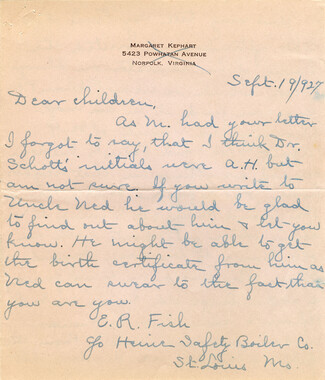 MARGARET KEPHART
5423 POWHATAN AVENUE
NORFOLK, VIRGINIA
Sept. 19/927
Dear children,
As M. had your letter
I forgot to say, that I think Dr.
Schott's initials were A.H. but
am not sure. If you write to
Uncle Ned he would be glad
to find out about him & let you
know. He might be able to get
the birth certificate from him as
Ned can swear to the fact that
you are you.
E. R. Fish
c/o Heine Safety Boiler Co.
St. Louis Mo.